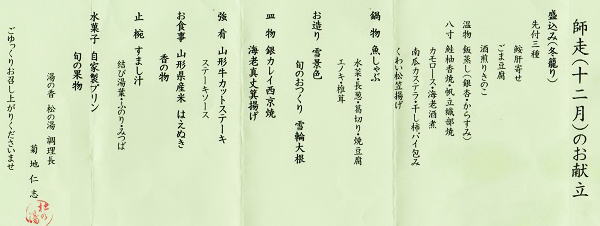 師走(十二月)のお献立
盛込み(冬籠り)
先付三種
鮟肝寄せ
ごま豆腐
酒煎りきのこ
温物 飯蒸し(銀杏・からすみ)
八寸 鮭柚香焼・帆立織部焼
カモロース・海老酒煮
南瓜カステラ・干し柿パイ包み
くわい松笠揚げ
鍋物 魚しゃぶ
水菜・長葱・葛切り・焼豆腐
エノキ・椎茸
お造り 雪景色
旬のおつくり 雪輪大根
皿物 銀カレイ西京焼
海老真丈巽揚げ
強肴 山形牛カットステーキ
ステーキソース
お食事 山形県産米 はえぬき
香の物
止椀 すまし汁
結び湯葉・ふのり・みつば
水菓子 自家製プリン
旬の果物
湯の香 松の湯 調理長
菊地 仁志
ごゆっくりお召し上がりくださいませ
松の湯